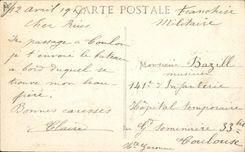 CARTE POSTALE
Franchise
Militaire
12 avril 19
Cher
De passage à Toulon
je t'envoie le bateau
a bord duquel se
trouve mon beau
frère.
Bonnes caresses
Claire
Monsieur Bazill
musicien
141e d'Infanterie
Hôpital temporaire
Gd Seminaire 33
Toulouse
Hte Garonne